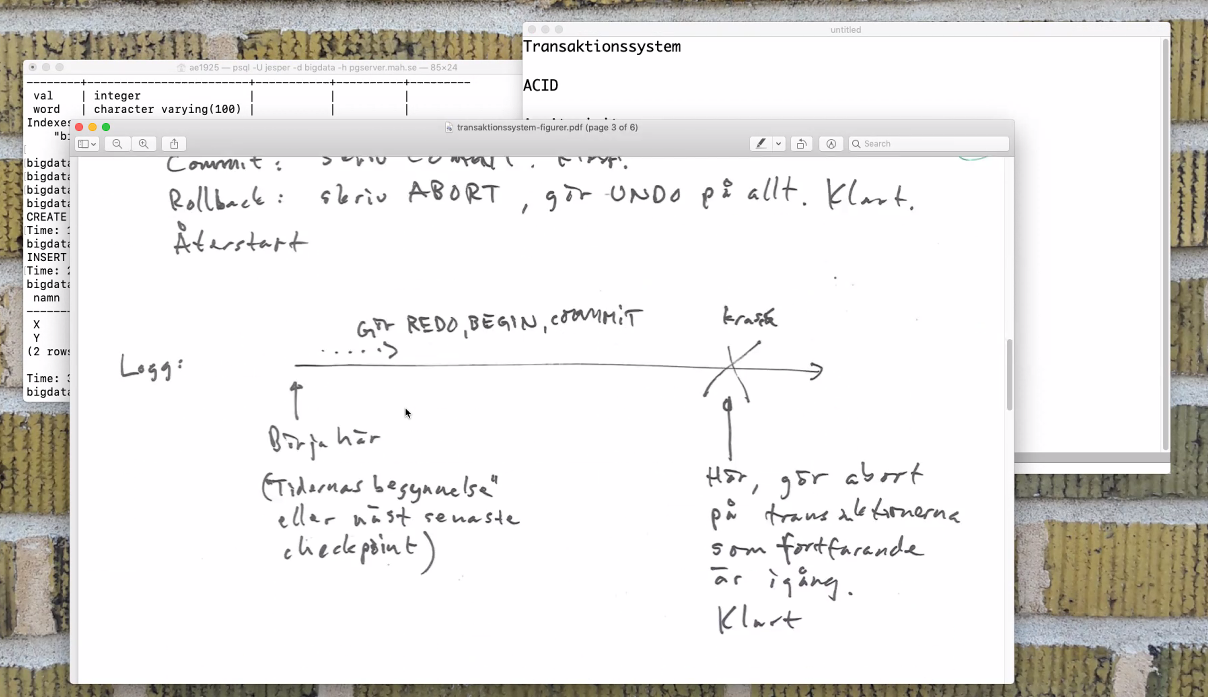 untitled
Transaktionssystem
ACID
ae1925 — psql -U jesper -d bigdata -h pgserver.mah.se — 85×24
--------+------------------------+----------+----------+---------
val | integer | | |
word | character varying(100) | | |
Indexes
"bi
bigdata
bigdata
bigdata
bigdata
CREATE
Time: 1
bigdata
INSERT
Time: 2
bigdata
namn
X
Y
(2 rows
Time: 3
bigdata
transaktionssystem-figurer.pdf (page 3 of 6)
Search
Commit: skriv COMMIT. Klart.
Rollback: skriv ABORT, gör UNDO på allt. Klart.
Återstart
Gör REDO, BEGIN, COMMIT
krasch
Logg:
Börja här
("Tidernas begynnelse"
eller näst senaste
checkpoint)
Här, gör abort
på transaktionerna
som fortfarande
är igång.
Klart